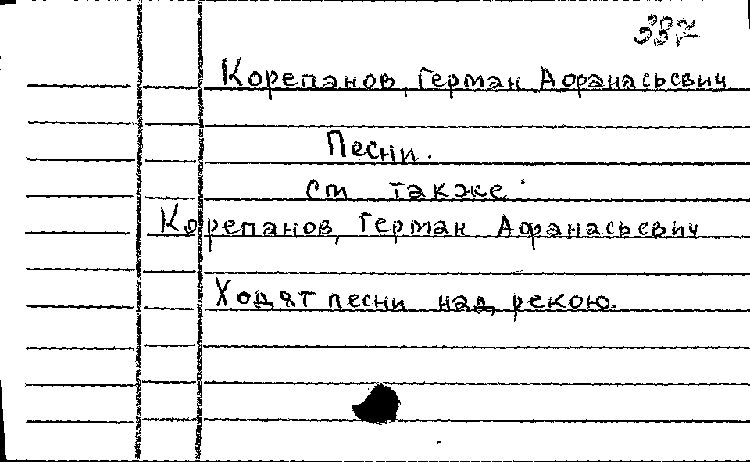 337
Корепанов, Герман Афанасьевич
Песни.
см также:
Корепанов, Герман Афанасьевич
Ходят песни над рекою.